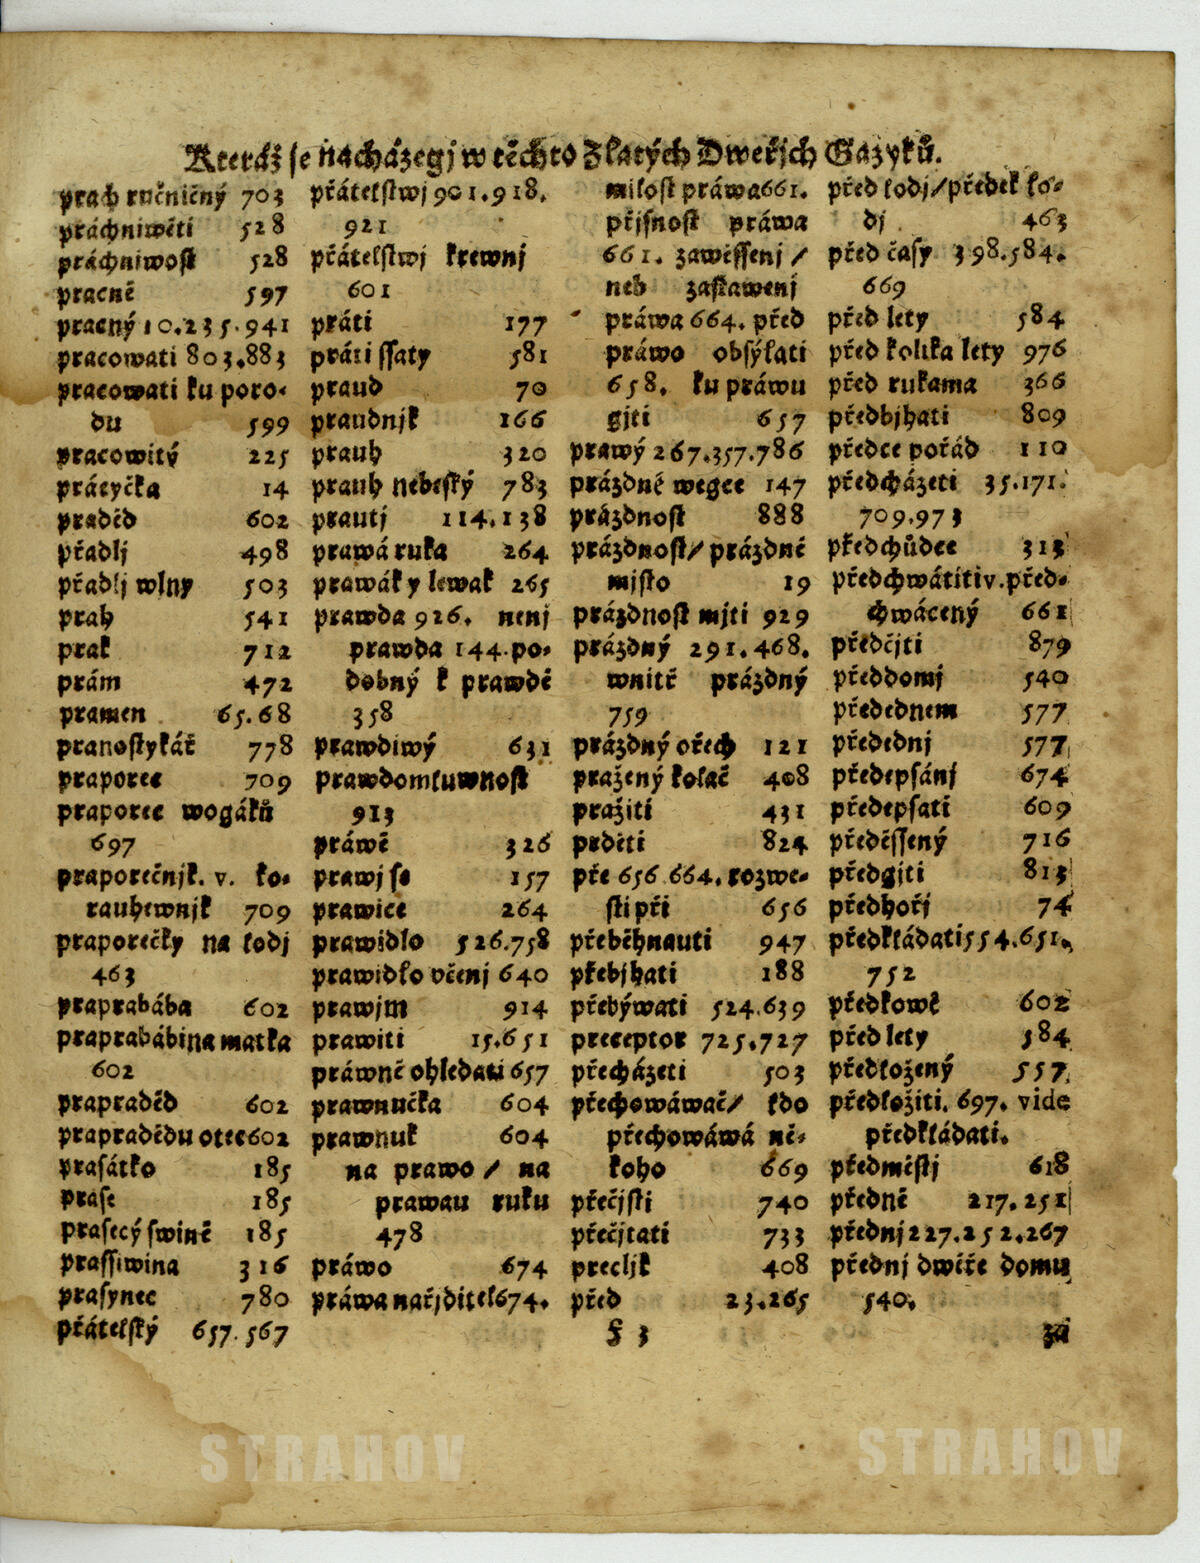 Kteráž se nacházegj w těchto Zlatých Dweřjch Gazyků.
prach ručničný 703
práchniwěti 528
práchniwost 528
pracně 597
pracný 10.235.941
pracowati 803.883
pracowati ku poro-
du 599
pracowitý 225
prácyčka 14
praděd 602
přadlj 498
přadlj wlny 503
prah 541
prak 712
prám 472
pramen 65.68
pranostykář 778
praporec 709
praporec wogáků
697
praporečnjk. v. ko-
rauhewnjk 709
praporečky na lodj
463
praprabába 602
praprabábina matka
602
prapraděd 602
prapradědu otec 602
prasátko 185
prase 185
prasecý swině 185
prassiwina 316
prasynec 780
přátelský 657.567
přátelstwj 901.918.
921
přátelstwj krewnj
601
práti 177
práti ssaty 581
praud 70
praudnjk 166
prauh 320
prauh nebeský 783
prautj 114.138
prawá ruka 264
prawák y lewak 265
prawda 926. nenj
prawda 144. po-
dobný k prawdě
358
prawdiwý 631
prawdomluwnost
913
práwě 326
prawj se 157
prawice 264
prawidlo 526.758
prawidlo včenj 640
prawjm 914
prawiti 15.651
práwně ohledati 657
prawnučka 604
prawnuk 604
na prawo / na
prawau ruku
478
práwo 674
práwa nařjditel 674.
milost práwa 661.
přjsnost práwa
661. zawěssenj /
neb zastawenj
práwa 664. před
práwo obsýlati
658. ku práwu
gjti 657
prawý 267.357.786
prázdné wegce 147
prázdnost 888
prázdnost / prázdné
mjsto 19
prázdnost mjti 929
prázdný 291.468.
wnitř prázdný
759
prázdný ořech 121
pražený koláč 408
pražiti 431
prděti 824
pře 656.664. rozwe-
sti při 656
přeběhnauti 947
přebjhati 188
přebýwati 524.639
preceptor 725.727
přecházeti 503
přechowáwač / kdo
přechowáwá ně-
koho 669
přečjsti 740
přečjtati 733
precljk 408
před 23.265
F 3
před lodj / předek lo-
dj 463
před časy 398.584.
669
před lety 584
před kolika lety 976
před rukama 366
předbjhati 809
předce pořád 110
předcházeti 35.171.
709.973
předchůdce 313
předchwátiti v. před-
chwácený 661
předčjti 879
předdomj 540
předednem 577
předednj 577
předepsánj 674
předepsati 609
předěssený 716
předgjti 813
předhořj 74
předkládati 554.651.
752
předkowé 602
před lety 584
předložený 557
předložiti. 697. vide
předkládati.
předměstj 618
předně 217.251
přednj 227.252.267
přednj dwéře domu
540.
za
STRAHOV
STRAHOV